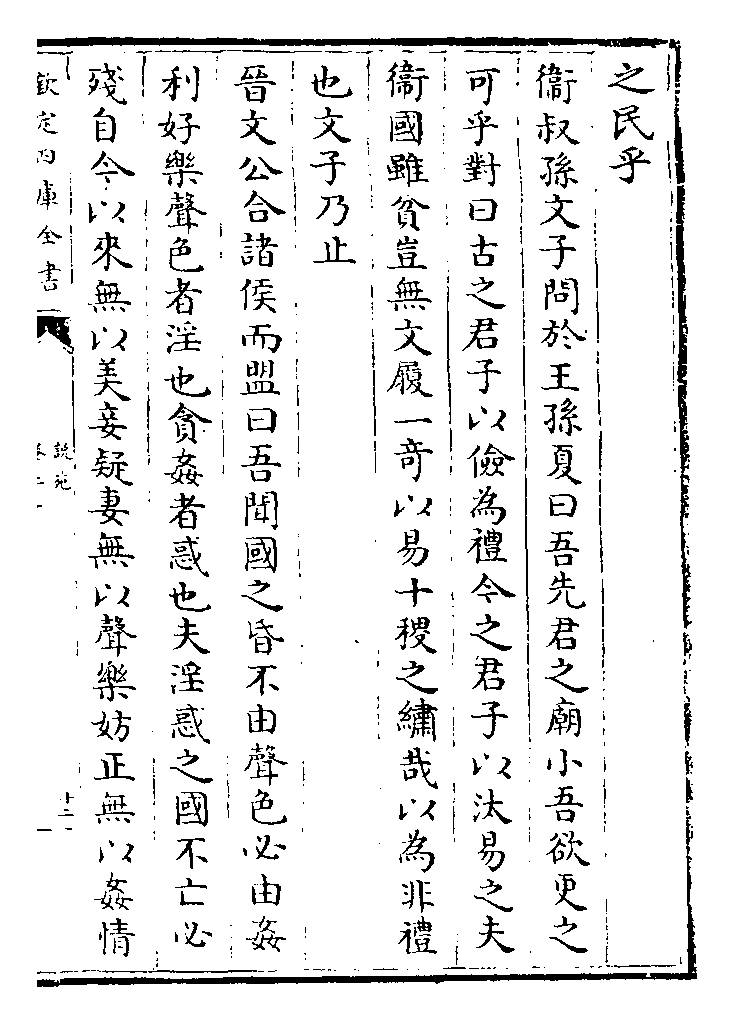 之民乎
衞叔孫文子問於王孫夏曰吾先君之廟小吾欲更之
可乎對曰古之君子以儉為禮今之君子以汰易之夫
衞國雖貧豈無文履一竒以易十稷之繡哉以為非禮
也文子乃止
晉文公合諸侯而盟曰吾聞國之昏不由聲色必由姦
利好樂聲色者淫也貪姦者惑也夫淫惑之國不亡必
殘自今以來無以美妾疑妻無以聲樂妨正無以姦情
欽定四庫全書
說苑
卷二十
十二